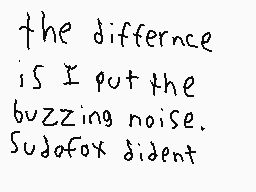 the differnce
is I put the
buzzing noise.
Sudofox dident